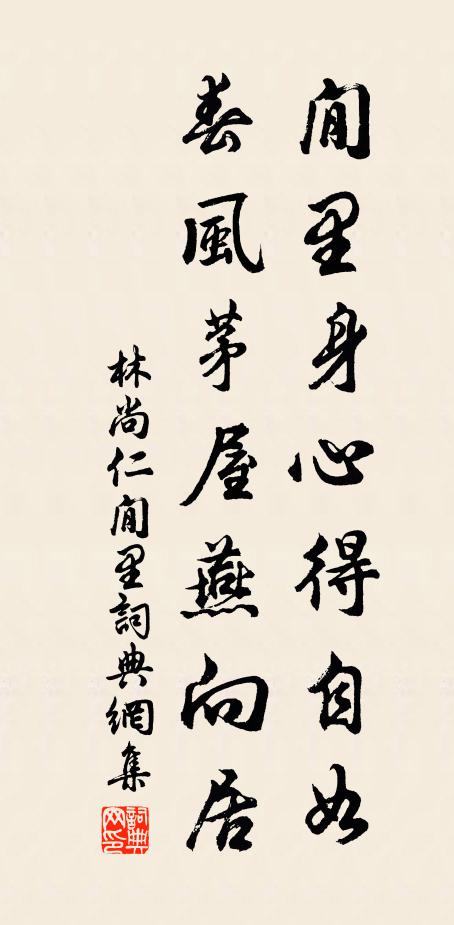 閒里身心得自如
春風茅屋燕向居
林尚仁閒里詞典網集
詞典網印